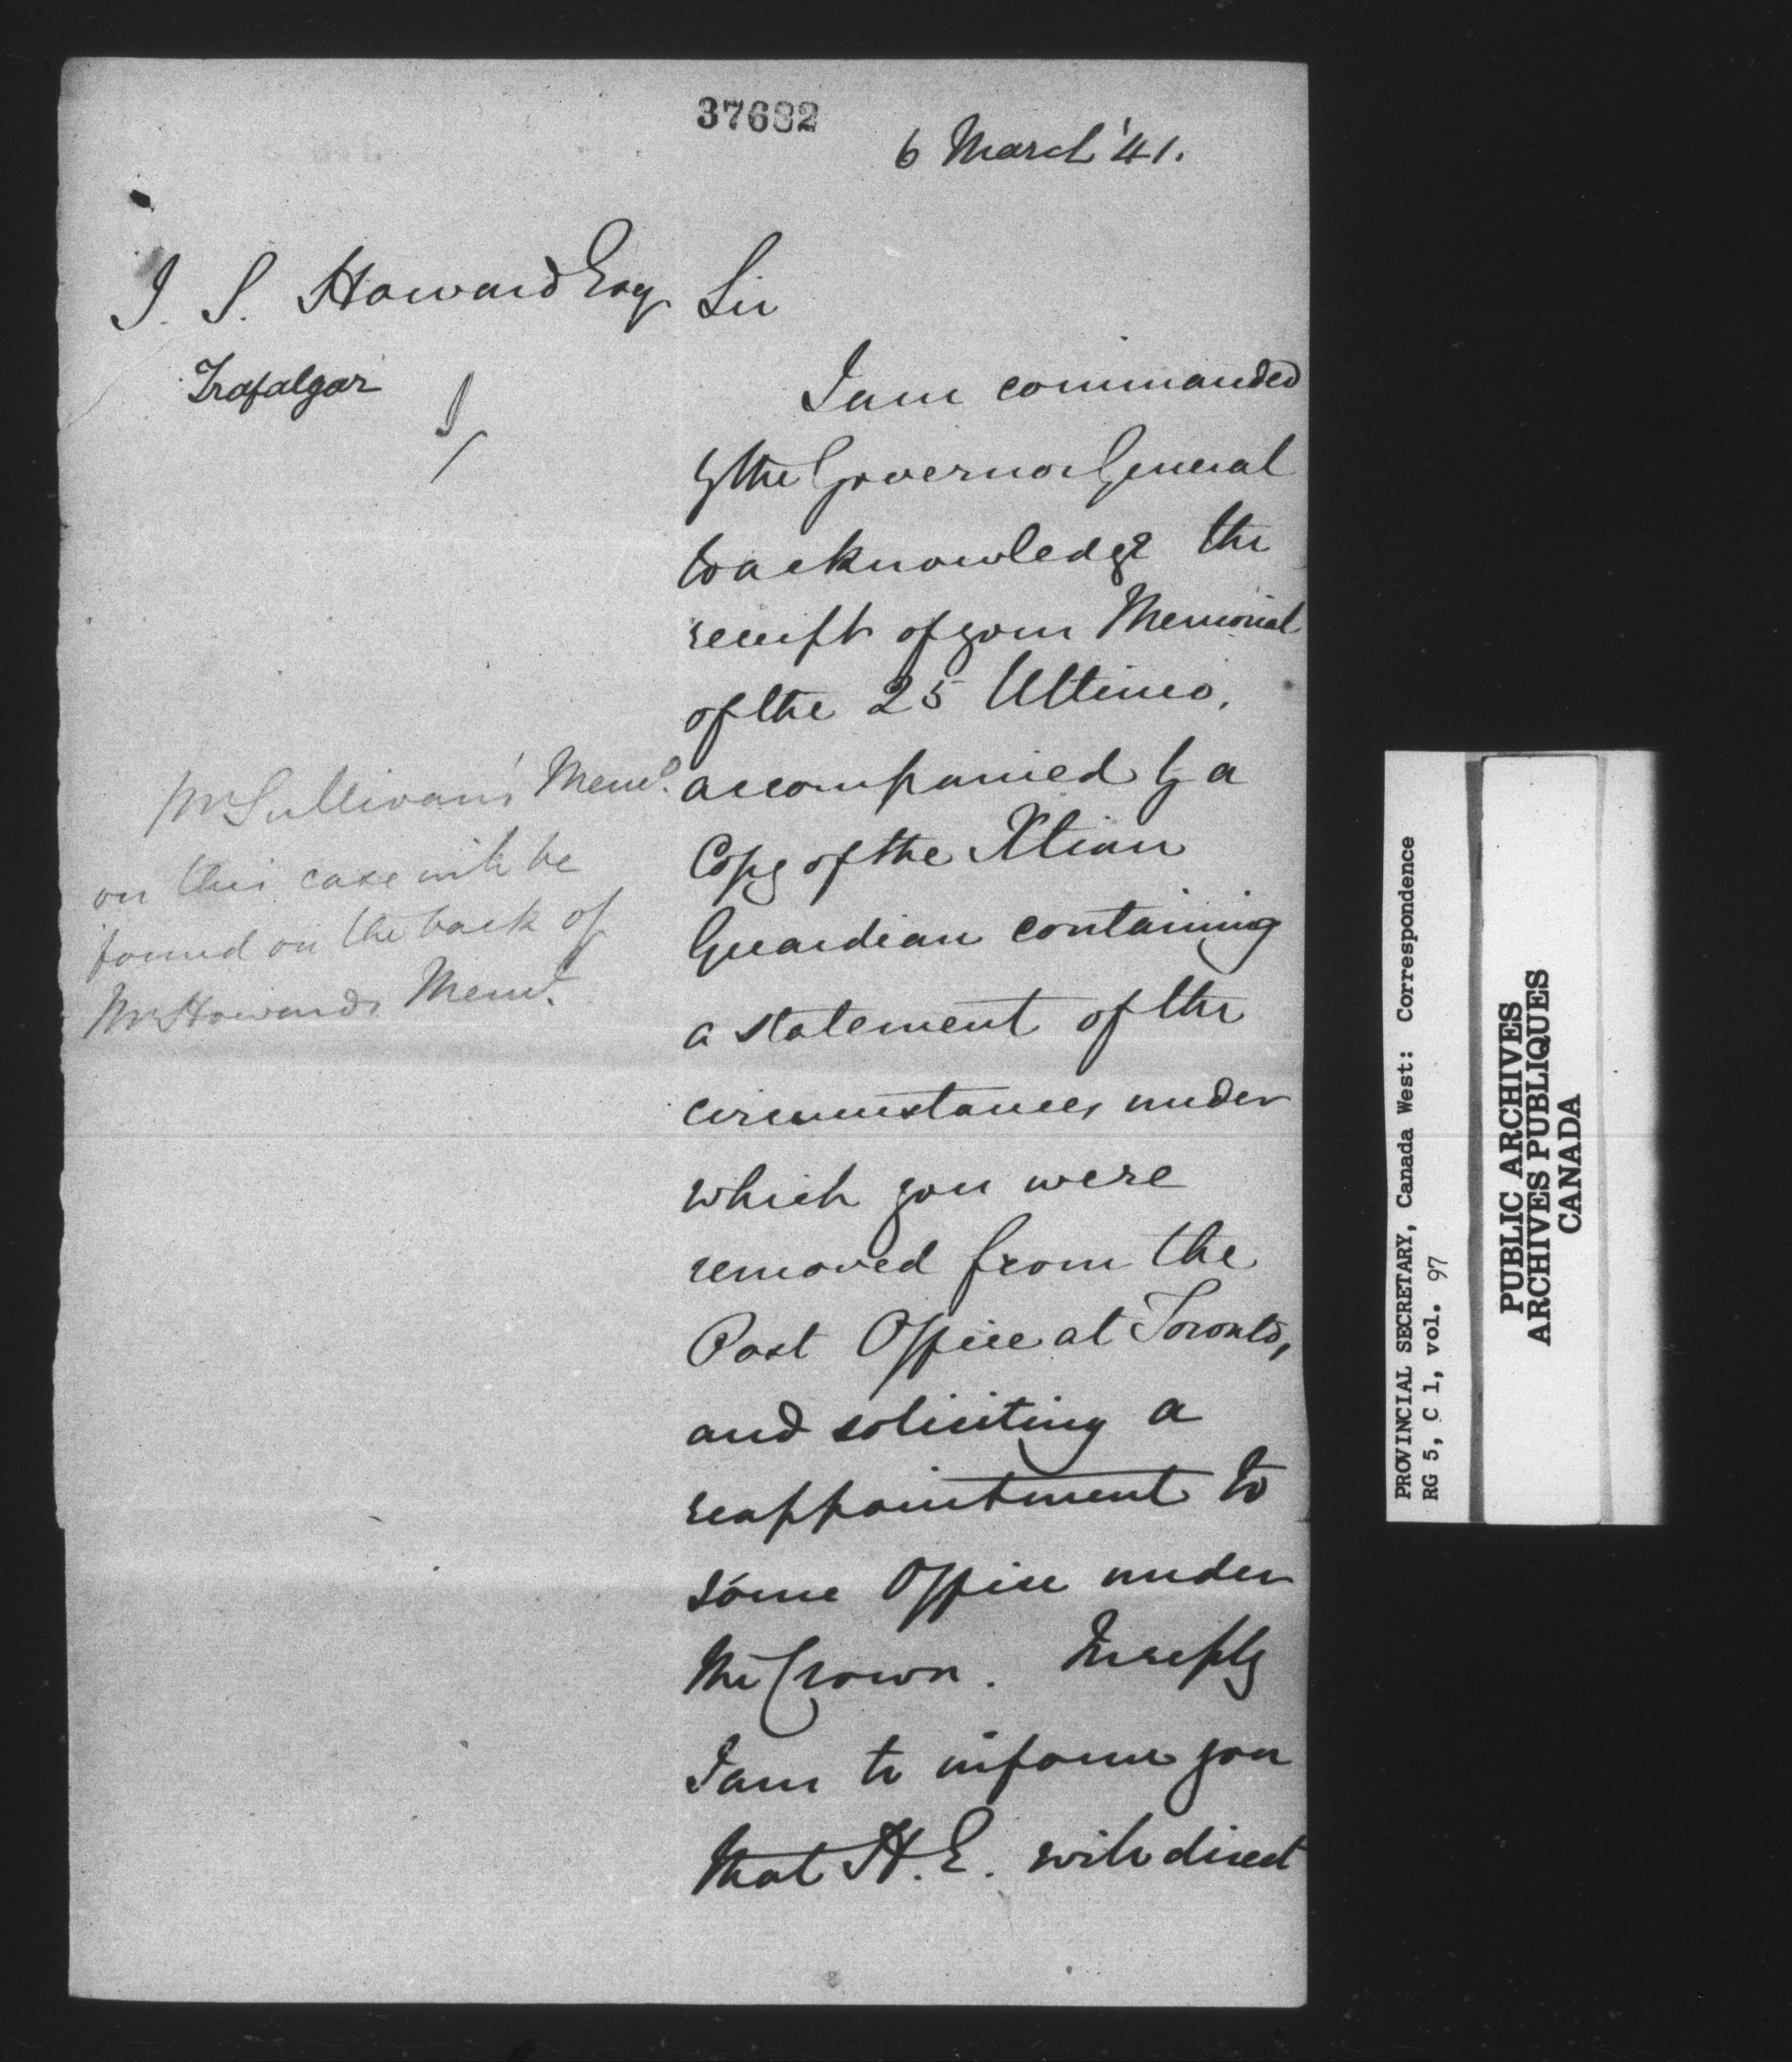 37682
6 March '41.
J. S. Howard Esq
Trafalgar
Sir
I am commanded
by the Governor General
to acknowledge the
receipt of your Memorial
of the 25 Ultimo,
accompanied by a
Copy of the Xtian
Guardian containing
a statement of the
circumstances under
which you were
removed from the
Post Office at Toronto,
and soliciting a
reappointment to
some Office under
the Crown. In reply
I am to inform you
that H.E. will direct
Mr Sullivan's Memo.
on this case will be
found on the back of
Mr Howards Meml.
PROVINCIAL SECRETARY, Canada West: Correspondence
RG 5, C 1, vol. 97
PUBLIC ARCHIVES
ARCHIVES PUBLIQUES
CANADA